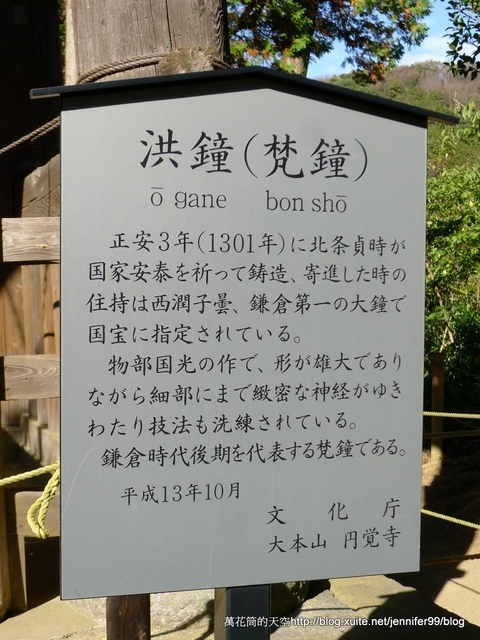 洪鐘(梵鐘)
ō gane bon shō
正安3年(1301年)に北条貞時が
国家安泰を祈って鋳造、寄進した時の
住持は西澗子曇、鎌倉第一の大鐘で
国宝に指定されている。
物部国光の作で、形が雄大であり
ながら細部にまで緻密な神経がゆき
わたり技法も洗練されている。
鎌倉時代後期を代表する梵鐘である。
平成13年10月
文化庁
大本山 円覚寺
萬花筒的天空http://blog.xuite.net/jennifer99/blog